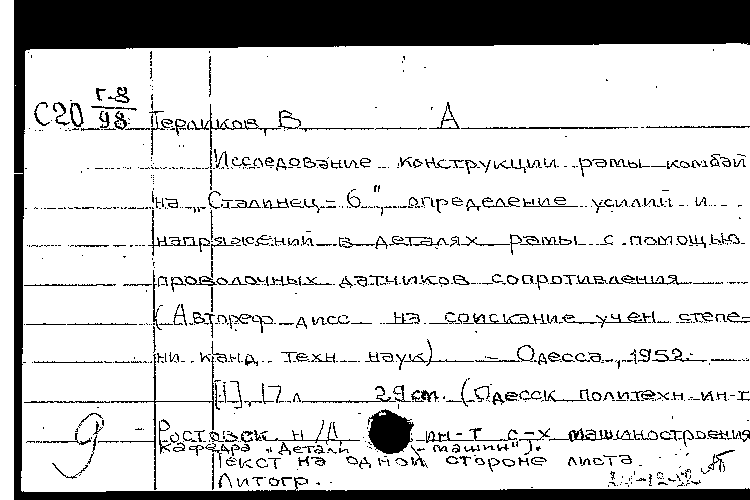 С20 Г-8/98 Герликов, В. А
Исследование конструкции рамы комбай
на „Сталинец-6", определение усилий и
напряжений в деталях рамы с помощью
проволочных датчиков сопротивления
(Автореф дисс на соискание учен степе-
ни канд техн наук) - Одесса, 1952.
[1], 17 л 29 cm. (Одесск политехн ин-т
Ростовск н/Д ин-т с-х машиностроения
кафедра „Детали машин").
Текст на одной стороне листа
Литогр.